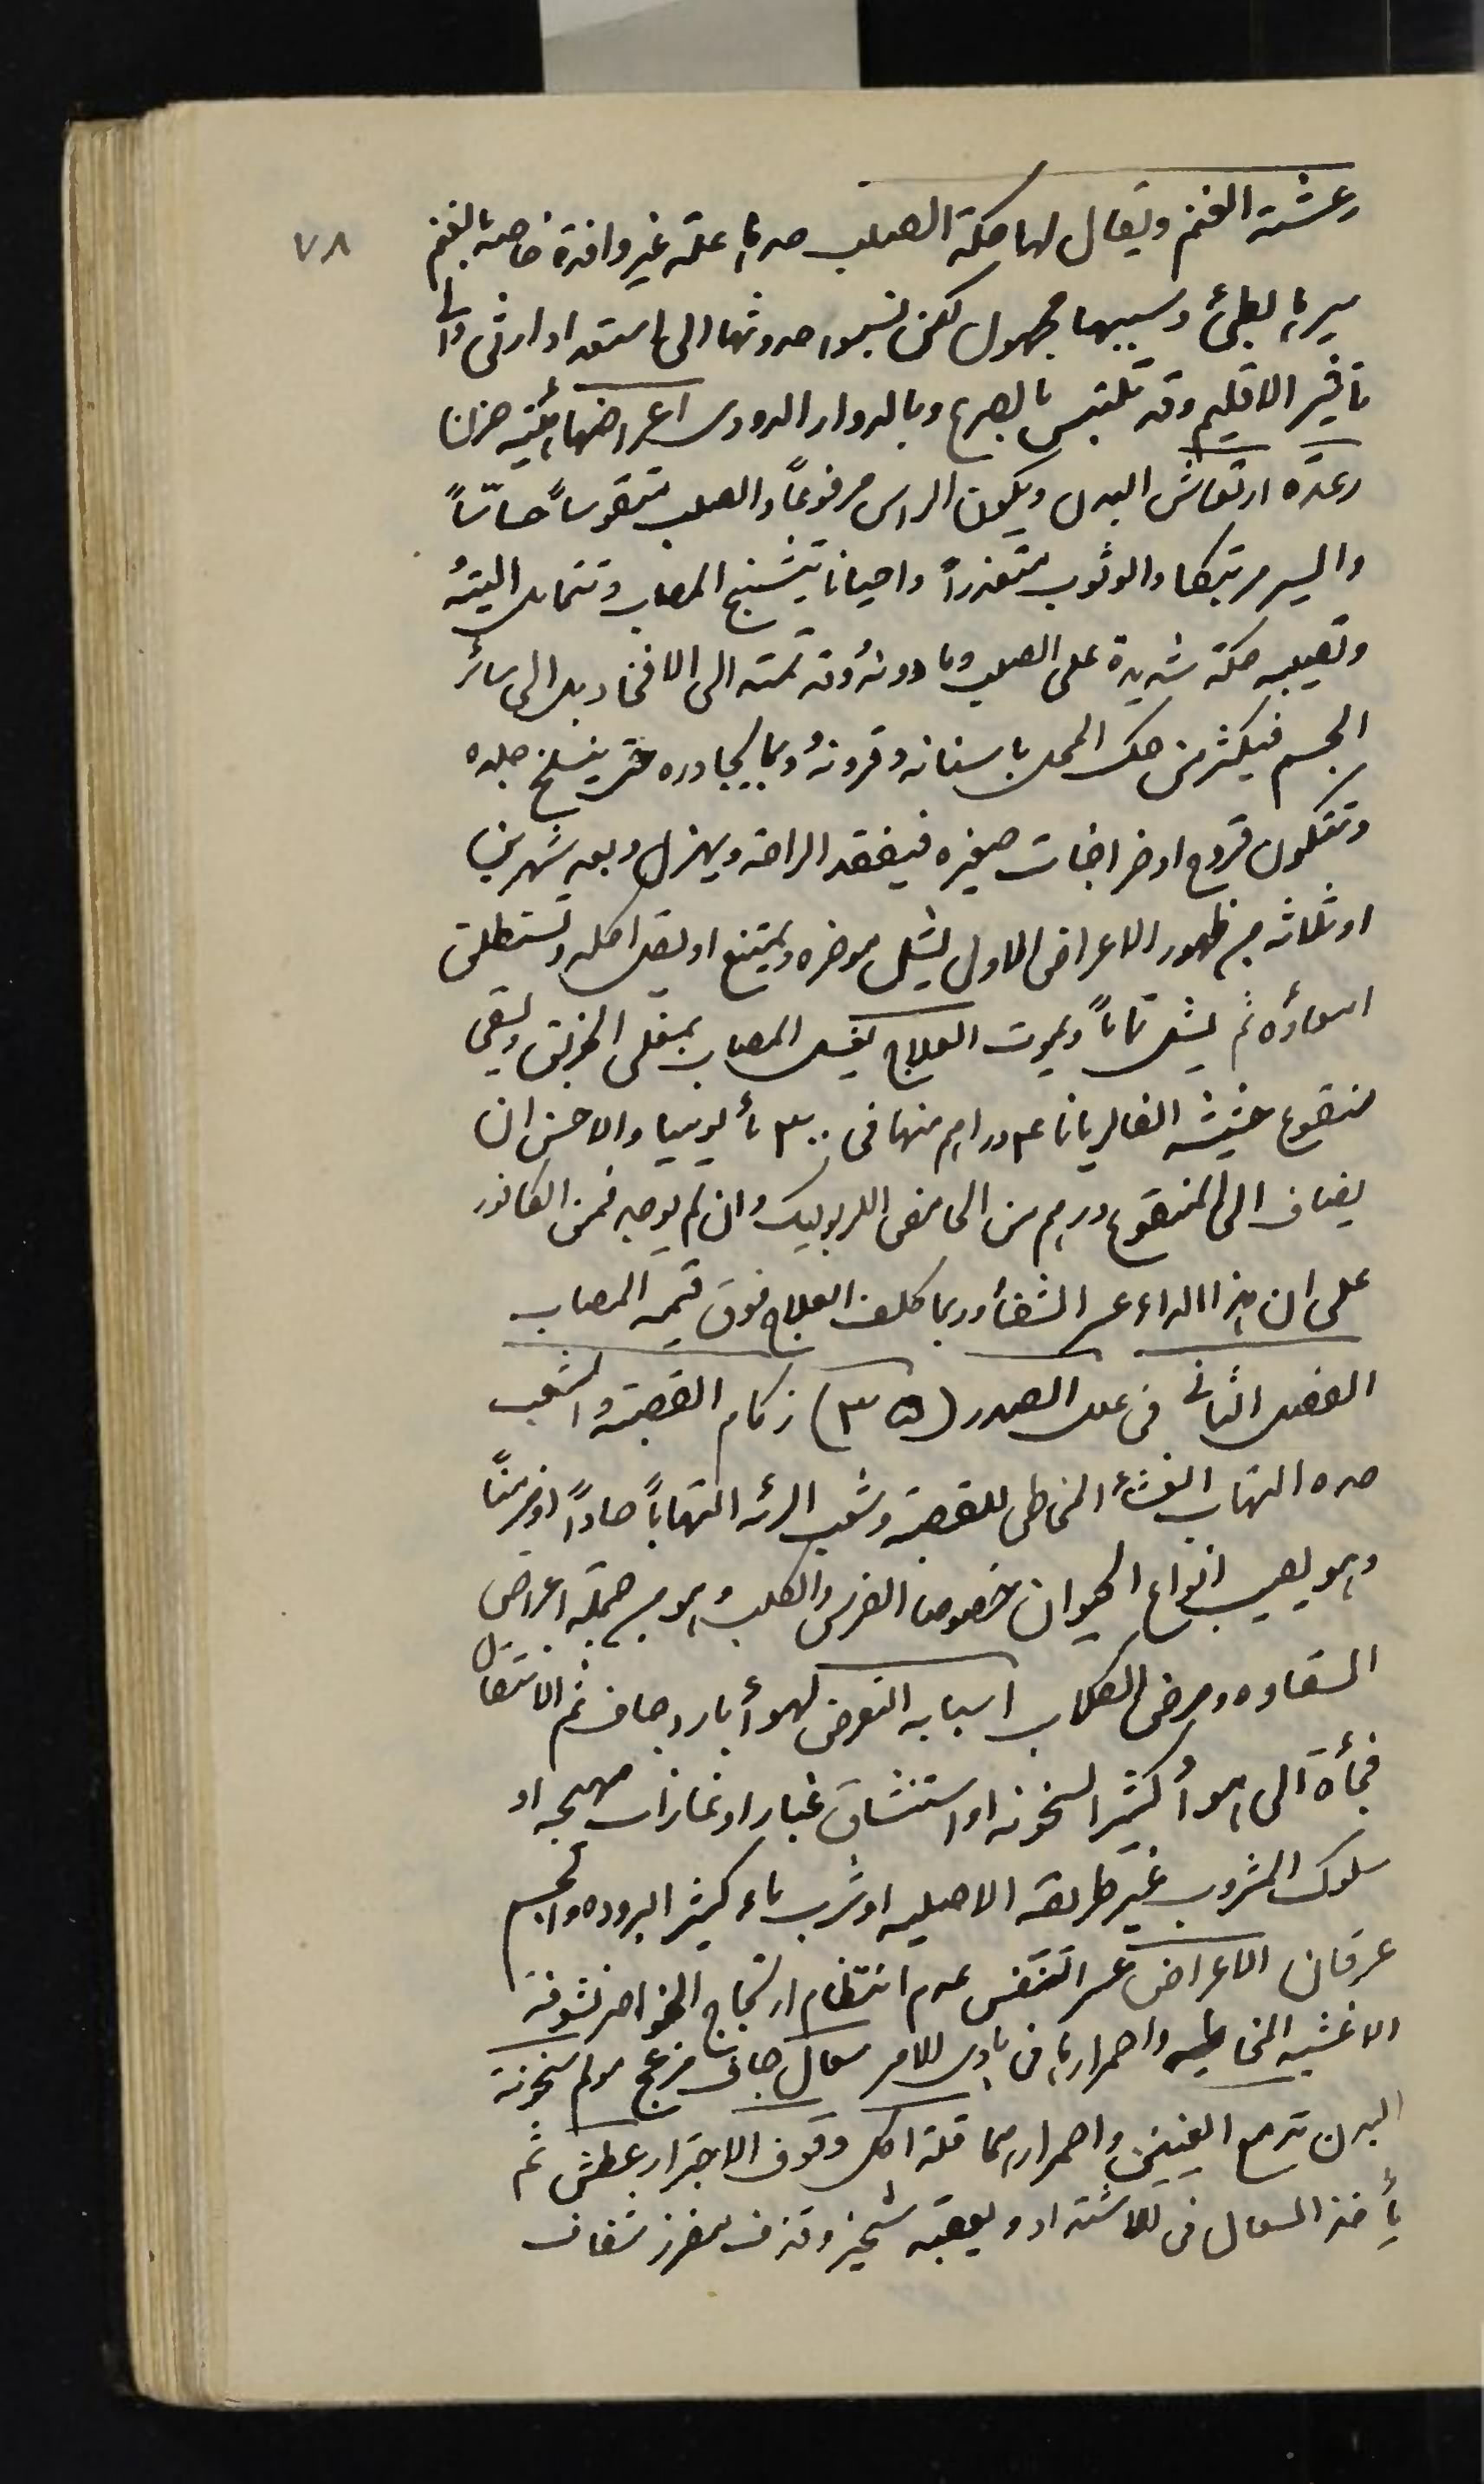 رعشة الغنم ويقال لها حكة الصلب حدها علة غير وافدة خاصة بالغنم ٧٨
سيرها بطئ وسببها مجهول لكن نسبوا حدوثها الى استعداد ارثى والى
تأثير الاقليم وقد تلتبس بالصرع وبالدوار الدودى اعراضها كئيبه حزن
رعدة ارتعاش البدن ويكون الراس مرفوعاً والصلب متقوساً حساساً
والسير مرتبكا والوثوب متعذراً واحيانا يتشنج المصاب وتتمايل اليته
وتصيبه حكة شديدة على الصلب وما دونه وقد تمتد الى الافخاذ بل الى سائر
الجسم فيكثر من حك المحل باسنانه وقرونه وبما يجاوره حتى ينسلخ جلده
وتتكون قروح او خراجات صغيره فيفقد الراحة ويهزل وبعد شهرين
او ثلاثه من ظهور الاعراض الاول يشل موخره ويمتنع او يقل اكله وتستطلق
امعاؤه ثم يشل تماماً ويموت العلاج يغسل المصاب بمغلى الخربق ويسقى
منقوع حشيشة الفاليريانا ٤ دراهم منها فى ٣٠٠ ماً يوميا والاحسن ان
يضاف الى المنقوع درهم من الحامض الكربوليك وان لم يوجد فمن الكافور
على ان هذا الداء عسر الشفأ وربما كلف العلاج فوق قيمه المصاب
الفصل الثانى فى علل الصدر (٣٥) زكام القصبة والشعب
حده التهاب الغشأ المخاطى للقصبة وشعب الرئه التهاباً حاداً او مزمناً
وهو يصيب انواع الحيوان خصوصا الفرس والكلب وهو من جملة اعراض
السقاوه ومرض الكلاب اسبابه التعرض لهوأ بارد جاف ثم الانتقال
فجأة الى هوأ كثير السخونه او استنشاق غبار او غازات مهيجه او
سلوك المشروب غير طريقه الاصليه او شرب ماء كثير البروده والجسم
عرقان الاعراض عسر التنفس عدم انتظام ارتجاج الخواصر نشوفة
الاغشيه المخاطيه واحمرارها فى بادى الامر سعال جاف مزعج مولم سخونة
البدن تدمع العينين واحمرارهما قلة اكل وقوف الاجترار عطش ثم
يأخذ السعال فى الاشتداد ويعقبه شخير وقذف مفرز شفاف